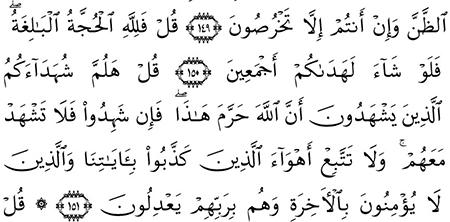 ٱلظَّنَّ وَإِنْ أَنتُمْ إِلَّا تَخْرُصُونَ ﴿١٤٩﴾ قُلْ فَلِلَّهِ ٱلْحُجَّةُ ٱلْبَٰلِغَةُ ۖ
فَلَوْ شَآءَ لَهَدَىٰكُمْ أَجْمَعِينَ ﴿١٥٠﴾ قُلْ هَلُمَّ شُهَدَآءَكُمُ
ٱلَّذِينَ يَشْهَدُونَ أَنَّ ٱللَّهَ حَرَّمَ هَٰذَا ۖ فَإِن شَهِدُوا۟ فَلَا تَشْهَدْ
مَعَهُمْ ۚ وَلَا تَتَّبِعْ أَهْوَآءَ ٱلَّذِينَ كَذَّبُوا۟ بِـَٔايَٰتِنَا وَٱلَّذِينَ
لَا يُؤْمِنُونَ بِٱلْـَٔاخِرَةِ وَهُم بِرَبِّهِمْ يَعْدِلُونَ ﴿١٥١﴾ ۞ قُلْ